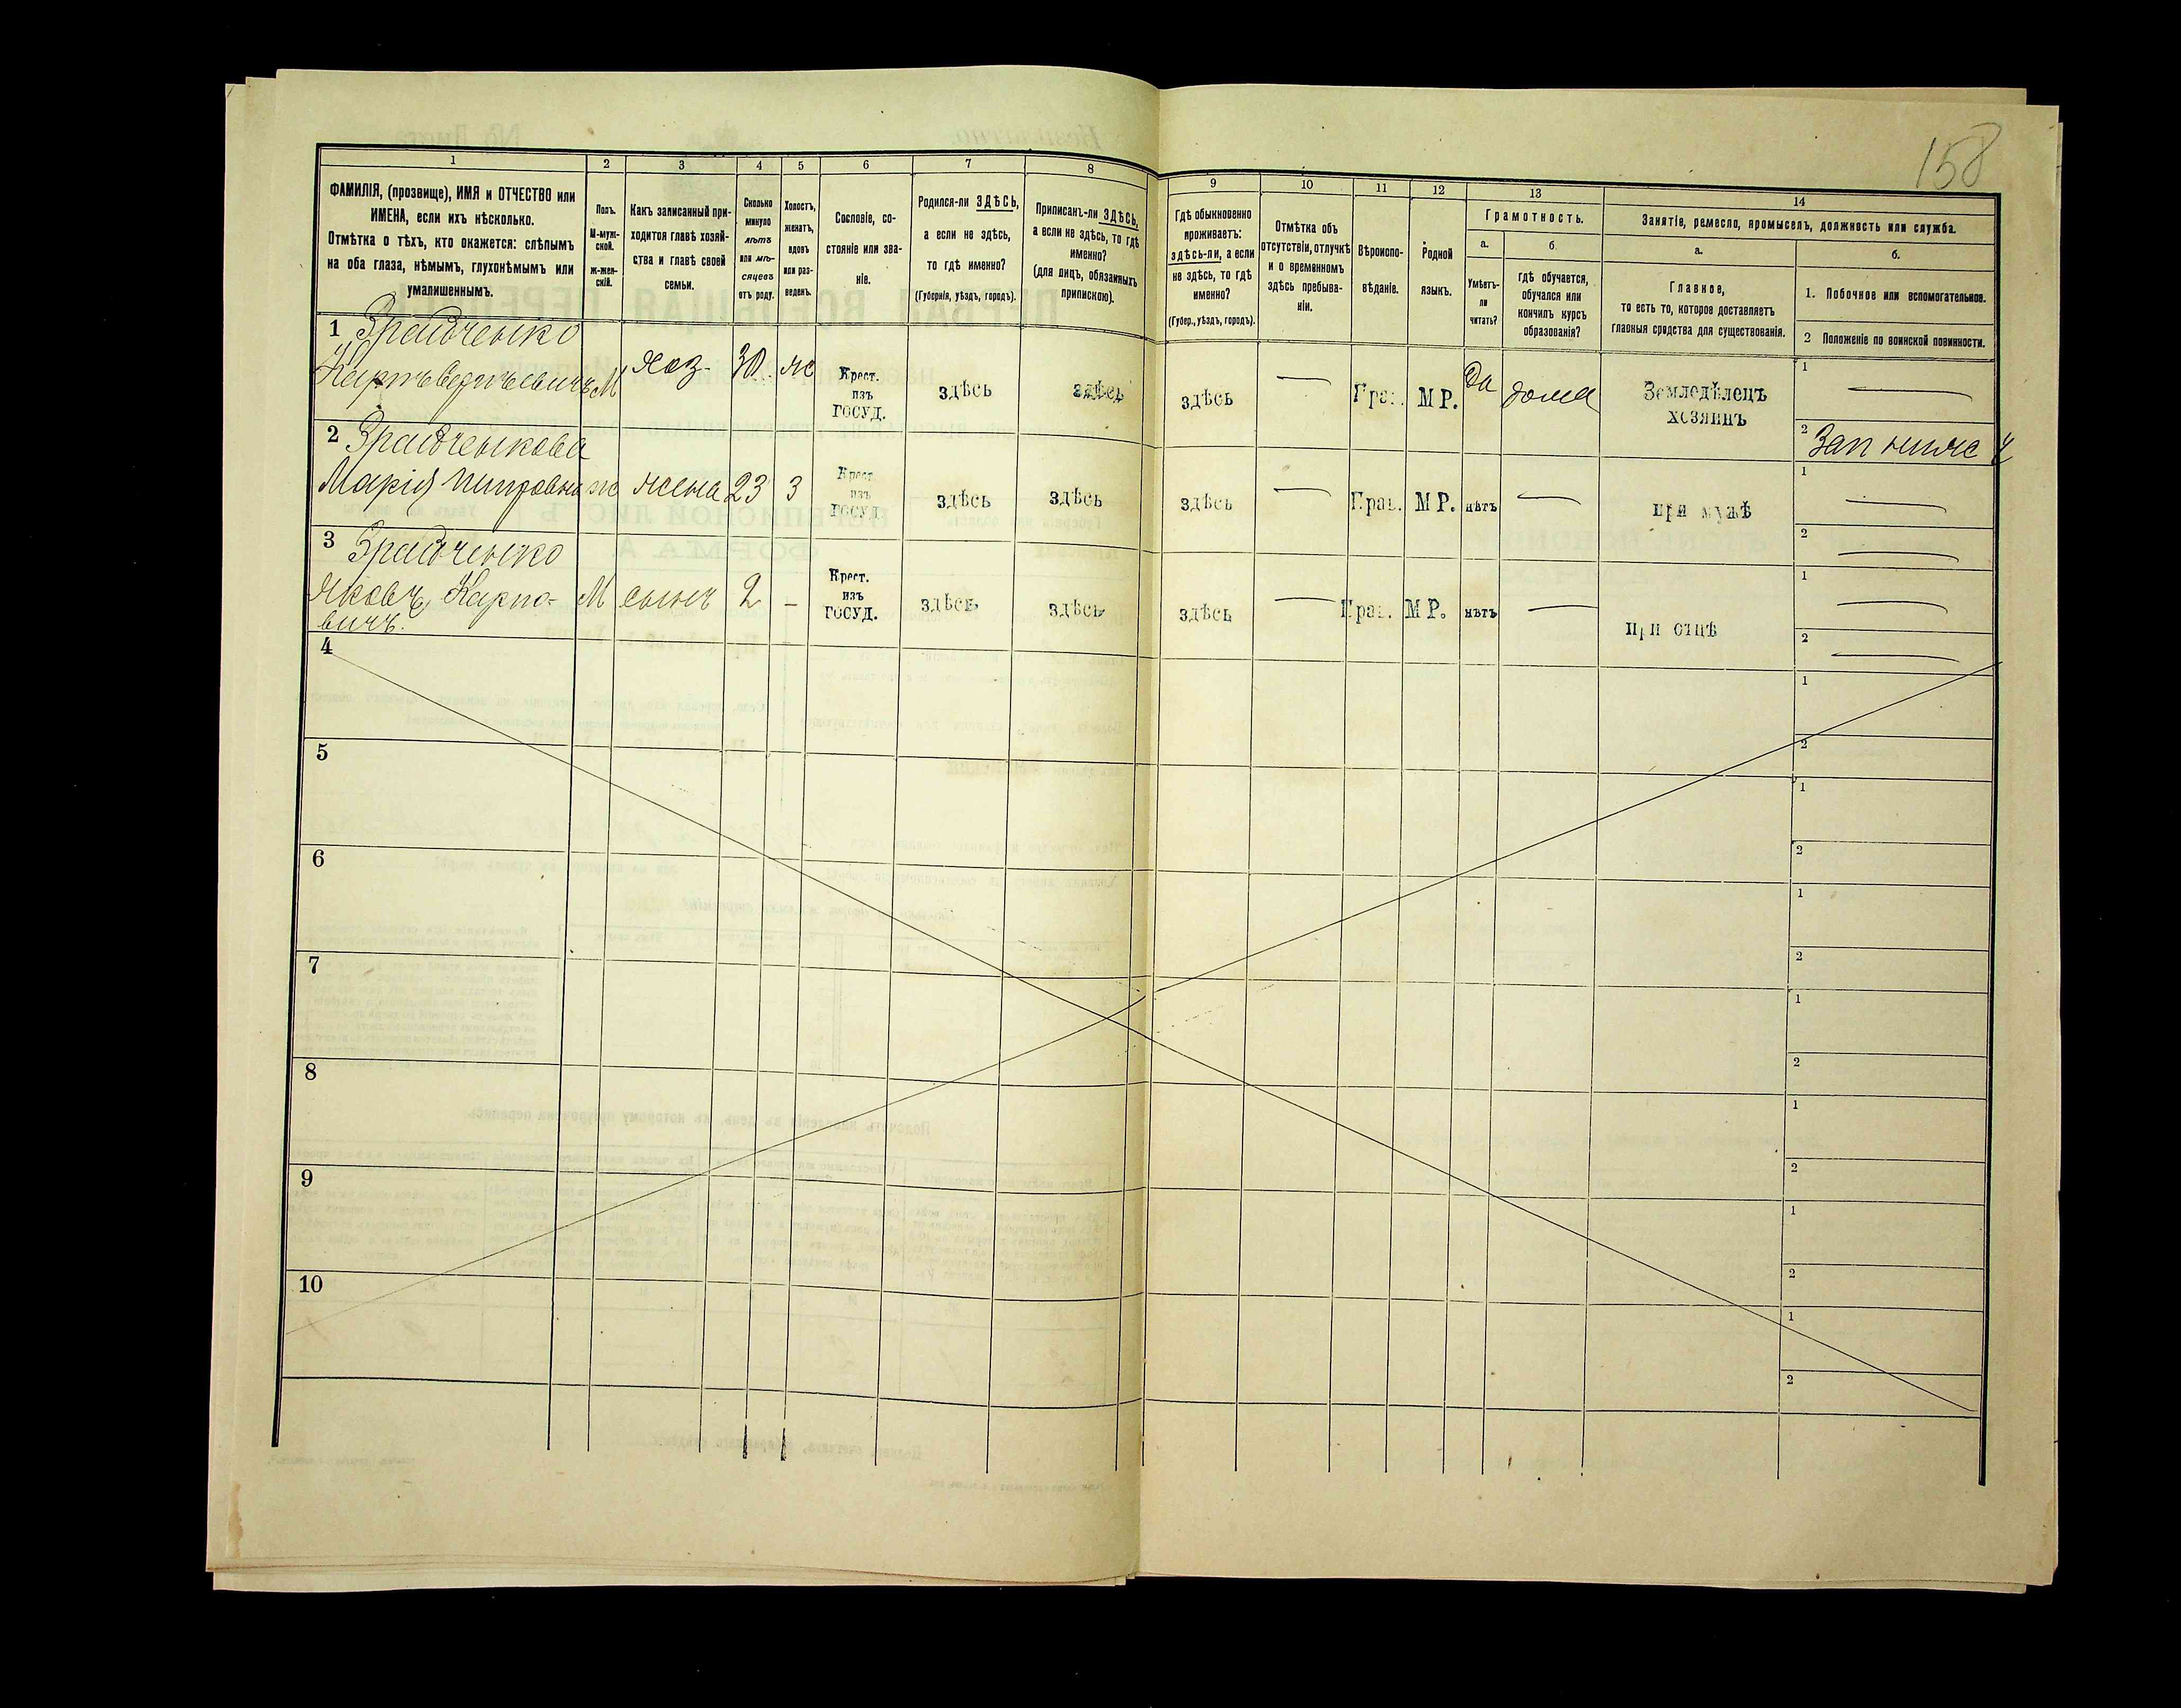 158
1
2
3
4
5
6
7
8
9
10
11
12
13
14
ФАМИЛІЯ, (прозвище), ИМЯ и ОТЧЕСТВО или
ИМЕНА, если ихъ нѣсколько.
Отмѣтка о тѣхъ, кто окажется: слѣпымъ
на оба глаза, нѣмымъ, глухонѣмымъ или
умалишеннымъ.
Полъ.
М-муж-
ской.
ж-жен-
скій.
Какъ записанный при-
ходится главѣ хозяй-
ства и главѣ своей
семьи.
Сколько
минуло
лѣтъ
или мѣ-
сяцевъ
отъ роду.
Холостъ,
женатъ,
вдовъ
или раз-
веденъ.
Сословіе, со-
стояніе или зва-
ніе.
Родился-ли ЗДѢСЬ,
а если не здѣсь,
то гдѣ именно?
(Губернія, уѣздъ, городъ).
Приписанъ-ли ЗДѢСЬ,
а если не здѣсь, то гдѣ
именно?
(для лицъ, обязанныхъ
припискою).
Гдѣ обыкновенно
проживаетъ:
здѣсь-ли, а если
не здѣсь, то гдѣ
именно?
(Губер., уѣздъ, городъ).
Отмѣтка объ
отсутствіи, отлучкѣ
и о временномъ
здѣсь пребыва-
ніи.
Вѣроиспо-
вѣданіе.
Родной
языкъ.
Грамотность.
а.
б.
Умѣетъ-
ли
читать?
Гдѣ обучается,
обучался или
кончилъ курсъ
образованія?
Занятіе, ремесло, промыселъ, должность или служба.
а.
б.
Главное,
то есть то, которое доставляетъ
главныя средства для существованія.
1. Побочное или вспомогательное.
2 Положеніе по воинской повинности.
1 Зрайченко
Карпъ М хоз. 30. ж Крест.
изъ
ГОСУД. здѣсь здѣсь здѣсь — Прав. МР. Да дома Земледѣлецъ
хозяинъ 1 —
2
2 Зрайченкова
Марія ж жена 23 З Крест.
изъ
ГОСУД. здѣсь здѣсь здѣсь — Прав. МР. нѣтъ — при мужѣ 1 —
2 —
3 Зрайченко
Яковъ Карпо-
вичъ. М сынъ 2 - Крест.
изъ
ГОСУД. здѣсь здѣсь здѣсь — Прав. МР. нѣтъ — при отцѣ 1 —
2 —
4 1
2
5 1
2
6 1
2
7 1
2
8 1
2
9 1
2
10 1
2